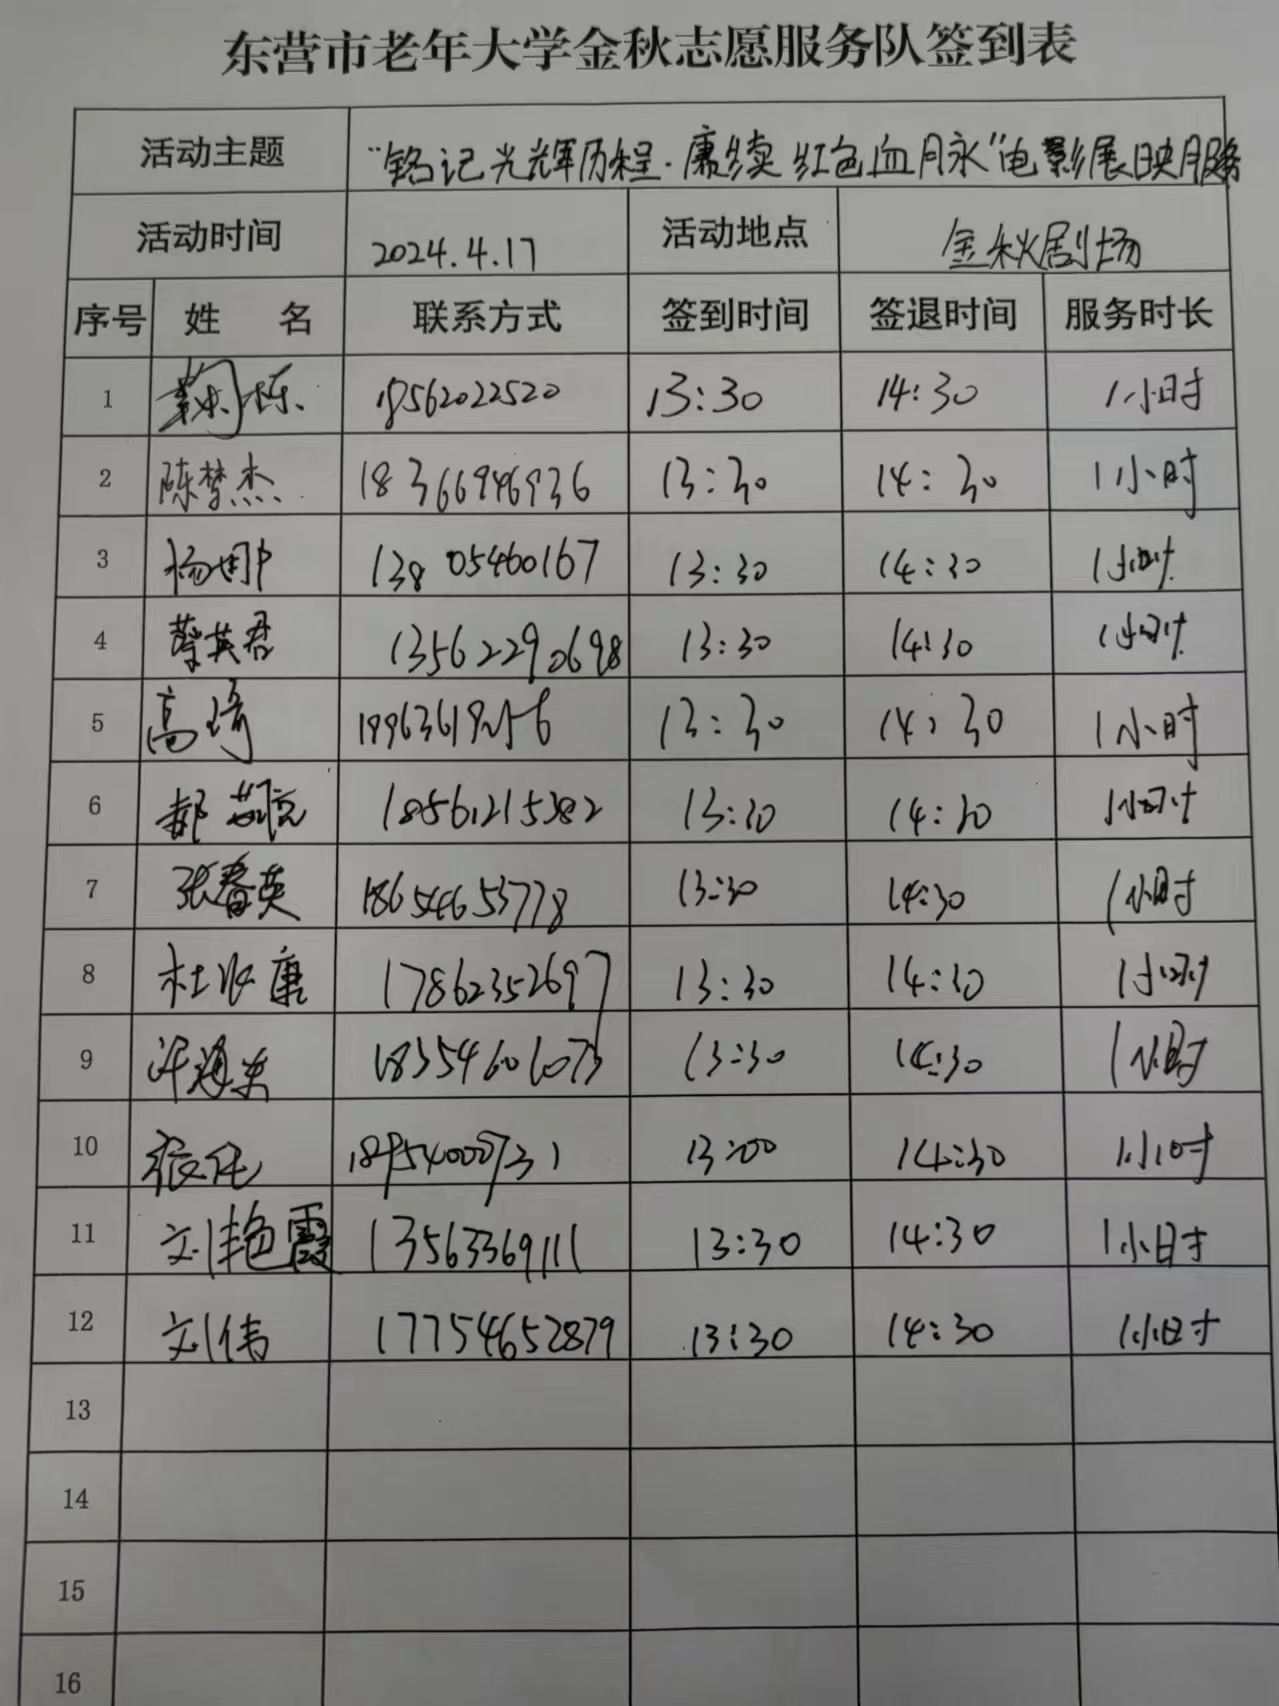 东营市老年大学金秋志愿服务队签到表
活动主题 "铭记光辉历程·赓续红色血脉"电影展映服务
活动时间 2024.4.17 活动地点 金秋剧场
序号 姓 名 联系方式 签到时间 签退时间 服务时长
1 栋 18562022520 13:30 14:30 1小时
2 陈梦杰 18366946936 13:30 14:30 1小时
3 杨娜 13805460167 13:30 14:30 1小时
4 英君 13562290698 13:30 14:30 1小时
5 高琦 13:30 14:30 1小时
6 郝 18561215382 13:30 14:30 1小时
7 张春英 18654653778 13:30 14:30 1小时
8 杜 康 17862352697 13:30 14:30 1小时
9 许海东 18354601073 13:30 14:30 1小时
10 13:00 14:30 1小时
11 刘艳霞 13563369111 13:30 14:30 1小时
12 刘伟 17754652879 13:30 14:30 1小时
13
14
15
16